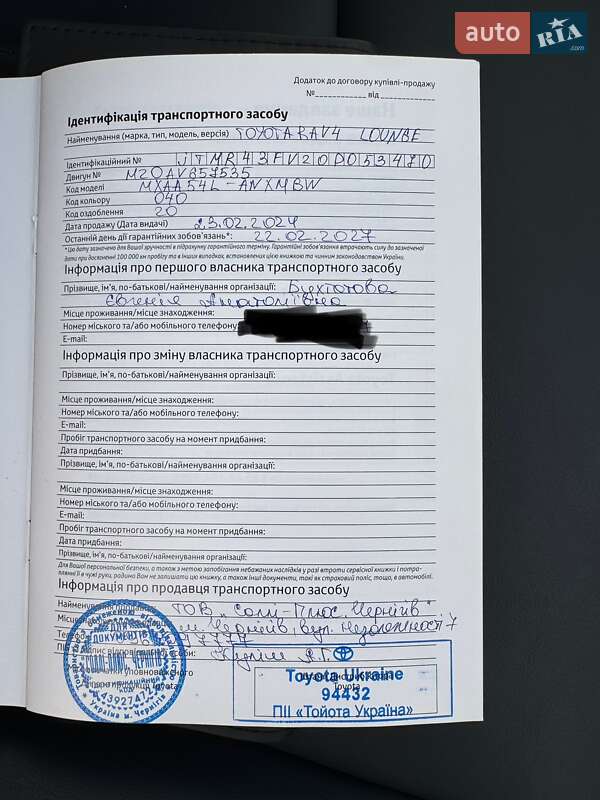 auto RIA .com
Додаток до договору купівлі-продажу
№ від
Ідентифікація транспортного засобу
Найменування (марка, тип, модель, версія) TOYOTA RAV4 LOUNGE
Ідентифікаційний № JTMR43FV20D053470
Двигун № M20AV857535
Код моделі MXAA54L-ANXMBW
Код кольору 040
Код оздоблення 20
Дата продажу (Дата видачі) 23.02.2024
Останній день дії гарантійних зобов'язань*: 22.02.2027
*Цю дату зазначено для Вашої зручності в підрахунку гарантійного терміну. Гарантійні зобов'язання втрачають силу до зазначеної
дати при досягненні 100 000 км пробігу та в інших випадках, встановлених цією книжкою та чинним законодавством України.
Інформація про першого власника транспортного засобу
Прізвище, ім'я, по-батькові/найменування організації:
Євгенія Анатоліївна
Місце проживання/місце знаходження:
Номер міського та/або мобільного телефону:
E-mail:
Інформація про зміну власника транспортного засобу
Прізвище, ім'я, по-батькові/найменування організації:
Місце проживання/місце знаходження:
Номер міського та/або мобільного телефону:
E-mail:
Пробіг транспортного засобу на момент придбання:
Дата придбання:
Прізвище, ім'я, по-батькові/найменування організації:
Місце проживання/місце знаходження:
Номер міського та/або мобільного телефону:
E-mail:
Пробіг транспортного засобу на момент придбання:
Дата придбання:
Прізвище, ім'я, по-батькові/найменування організації:
Для Вашої персональної безпеки, а також з метою запобігання небажаних наслідків у разі втрати сервісної книжки і потра-
плянні її в чужі руки, радимо Вам не залишати цю книжку, а також інші документи, такі як страховий поліс, тощо, в автомобілі.
Інформація про продавця транспортного засобу
Найменування ТОВ "Соллі-Плюс Чернігів"
м. Чернігів, вул. Незалежності 7
ДЛЯ ДОКУМЕНТІВ
"СОЛЛІ-ПЛЮС ЧЕРНІГІВ"
Україна м. Чернігів
Toyota Ukraine
94432
ПІІ «Тойота Україна»